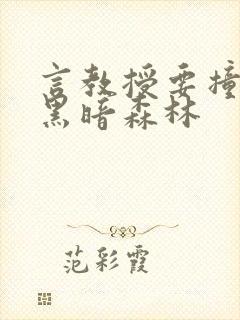 言教授要撞
黑暗森林
范彩霞